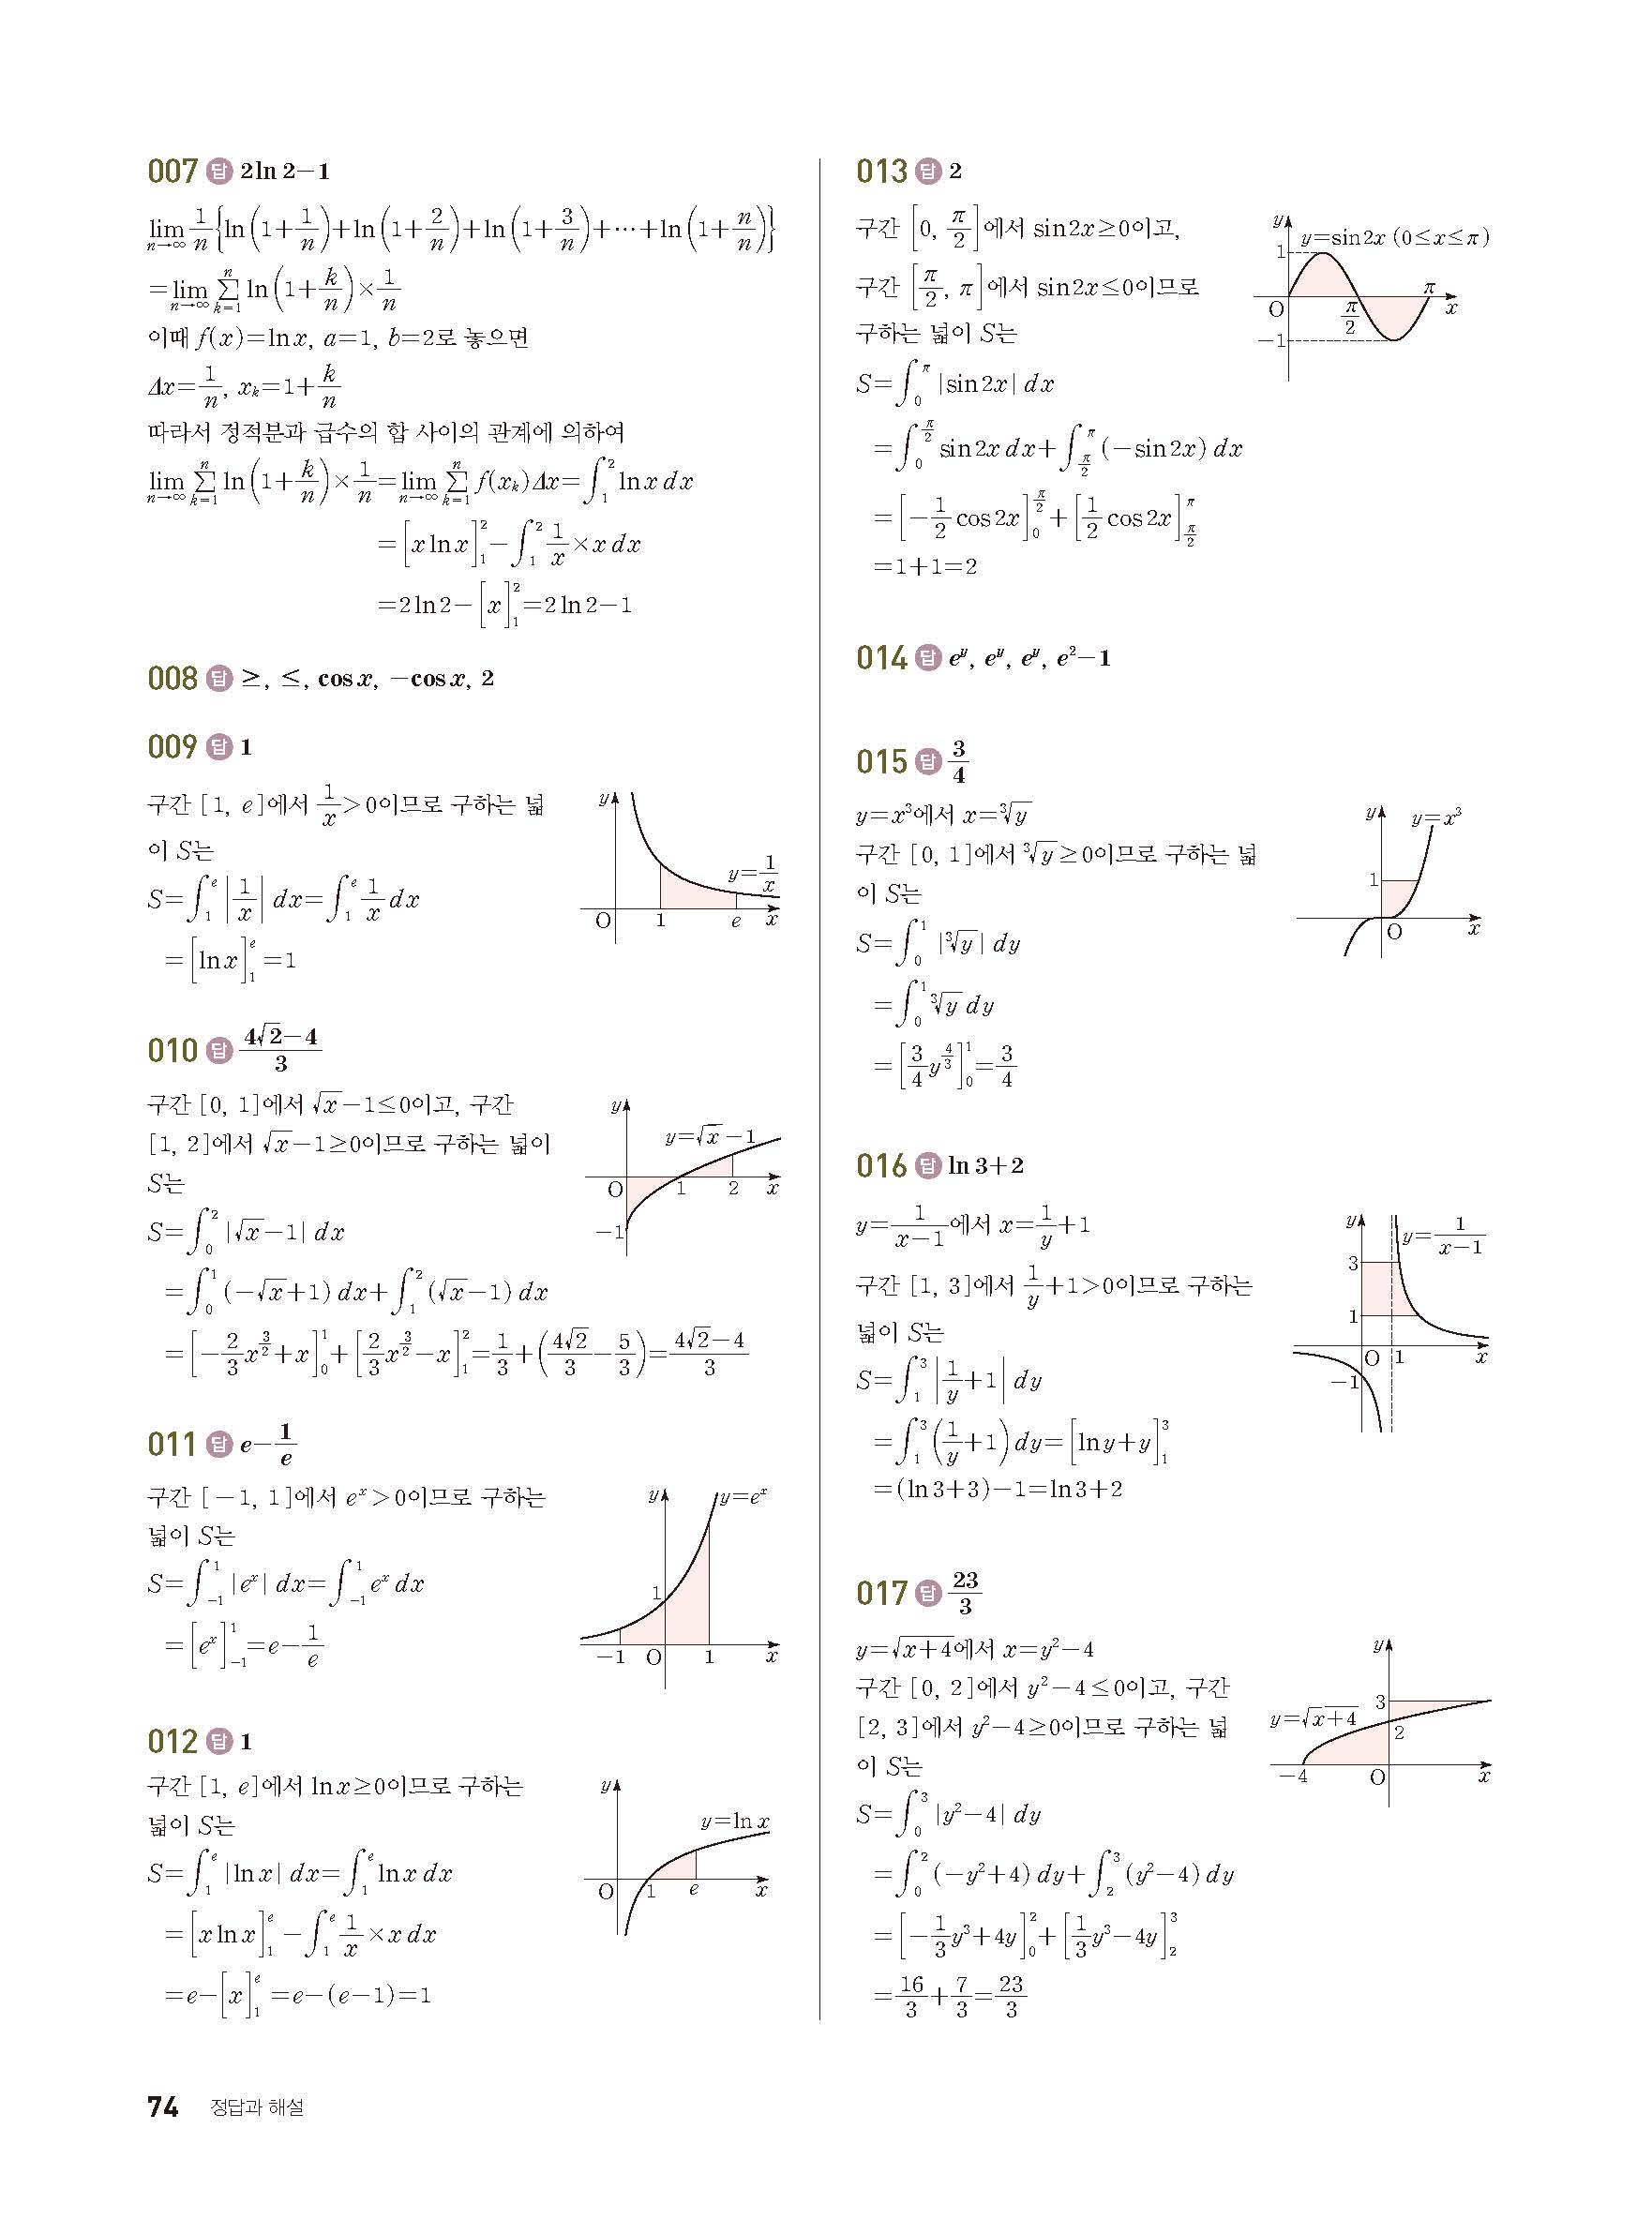 007 답 2ln2−1
lim_{n→∞} 1/n {ln(1+1/n)+ln(1+2/n)+ln(1+3/n)+⋯+ln(1+n/n)}
=lim_{n→∞} ∑_{k=1}^{n} ln(1+k/n)×1/n
이때 f(x)=lnx, a=1, b=2로 놓으면
Δx=1/n, x_k=1+k/n
따라서 정적분과 급수의 합 사이의 관계에 의하여
lim_{n→∞} ∑_{k=1}^{n} ln(1+k/n)×1/n=lim_{n→∞} ∑_{k=1}^{n} f(x_k)Δx=∫_1^2 lnx dx
=[xlnx]_1^2−∫_1^2 1/x×x dx
=2ln2−[x]_1^2=2ln2−1
008 답 ≥, ≤, cosx, −cosx, 2
009 답 1
구간 [1, e]에서 1/x>0이므로 구하는 넓
이 S는
S=∫_1^e |1/x| dx=∫_1^e 1/x dx
=[lnx]_1^e=1
y
y=1/x
O 1 e x
010 답 (4√2−4)/3
구간 [0, 1]에서 √x−1≤0이고, 구간
[1, 2]에서 √x−1≥0이므로 구하는 넓이
S는
S=∫_0^2 |√x−1| dx
=∫_0^1 (−√x+1) dx+∫_1^2 (√x−1) dx
=[−2/3 x^{3/2}+x]_0^1+[2/3 x^{3/2}−x]_1^2=1/3+(4√2/3−5/3)=(4√2−4)/3
y
y=√x−1
O 1 2 x
−1
011 답 e−1/e
구간 [−1, 1]에서 e^x>0이므로 구하는
넓이 S는
S=∫_{−1}^1 |e^x| dx=∫_{−1}^1 e^x dx
=[e^x]_{−1}^1=e−1/e
y y=e^x
1
−1 O 1 x
012 답 1
구간 [1, e]에서 lnx≥0이므로 구하는
넓이 S는
S=∫_1^e |lnx| dx=∫_1^e lnx dx
=[xlnx]_1^e−∫_1^e 1/x×x dx
=e−[x]_1^e=e−(e−1)=1
y
y=lnx
O 1 e x
013 답 2
구간 [0, π/2]에서 sin2x≥0이고,
구간 [π/2, π]에서 sin2x≤0이므로
구하는 넓이 S는
S=∫_0^π |sin2x| dx
=∫_0^{π/2} sin2x dx+∫_{π/2}^π (−sin2x) dx
=[−1/2 cos2x]_0^{π/2}+[1/2 cos2x]_{π/2}^π
=1+1=2
y
y=sin2x (0≤x≤π)
1
O π/2 π x
−1
014 답 e^y, e^y, e^y, e^2−1
015 답 3/4
y=x^3에서 x=∛y
구간 [0, 1]에서 ∛y≥0이므로 구하는 넓
이 S는
S=∫_0^1 |∛y| dy
=∫_0^1 ∛y dy
=[3/4 y^{4/3}]_0^1=3/4
y y=x^3
1
O x
016 답 ln3+2
y=1/(x−1)에서 x=1/y+1
구간 [1, 3]에서 1/y+1>0이므로 구하는
넓이 S는
S=∫_1^3 |1/y+1| dy
=∫_1^3 (1/y+1) dy=[lny+y]_1^3
=(ln3+3)−1=ln3+2
y
y=1/(x−1)
3
1
O 1 x
−1
017 답 23/3
y=√(x+4)에서 x=y^2−4
구간 [0, 2]에서 y^2−4≤0이고, 구간
[2, 3]에서 y^2−4≥0이므로 구하는 넓
이 S는
S=∫_0^3 |y^2−4| dy
=∫_0^2 (−y^2+4) dy+∫_2^3 (y^2−4) dy
=[−1/3 y^3+4y]_0^2+[1/3 y^3−4y]_2^3
=16/3+7/3=23/3
y
3
y=√(x+4)
2
−4 O x
74 정답과 해설